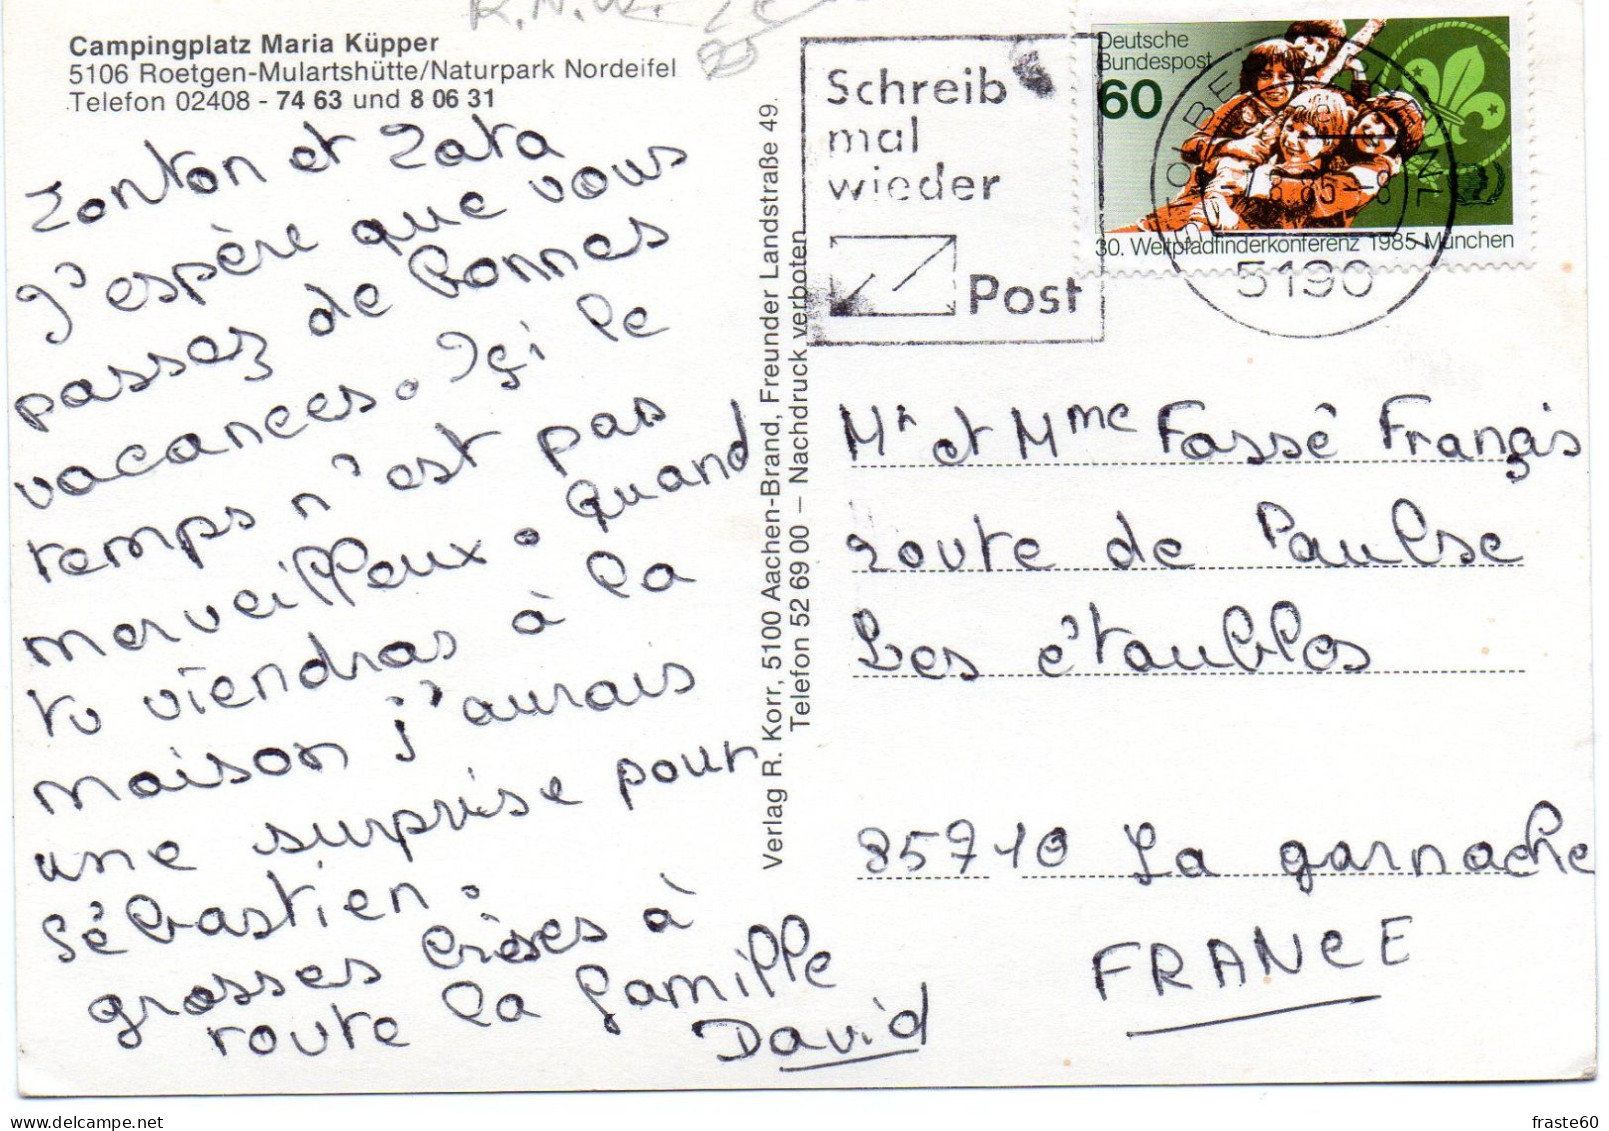 R.N.W.
Campingplatz Maria Küpper
5106 Roetgen-Mulartshütte/Naturpark Nordeifel
Telefon 02408 - 74 63 und 8 06 31
Tonton et Tata
J'espère que vous
passez de bonnes
vacances. Içi le
temps n'est pas
merveilleux. Quand
tu viendras à la
maison j'aurais
une surprise pour
Sébastien.
grosses bises à
toute la famille
David
Verlag R. Korr, 5100 Aachen-Brand, Freunder Landstraße 49.
Telefon 52 69 00 – Nachdruck verboten
Schreib
mal
wieder
Post
Deutsche
Bundespost
60
30. Weltpfadfinderkonferenz 1985 München
5190
Mr et Mme Fassé François
route de Paulse
Les étaubles
85710 La garnache
FRANCE
fraste60